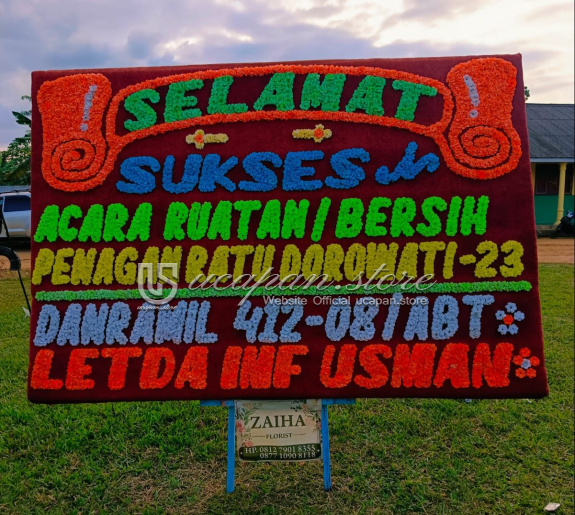 SELAMAT
SUKSES
ACARA RUATAN/BERSIH
PENAGAN BATU DOROWATI-23
ucapan.store
Website Official ucapan.store
DANRAMIL 412-08/ABT
LETDA INF USMAN
ZAIHA
FLORIST
HP. 0812 7901 8355
0877 1090 8118